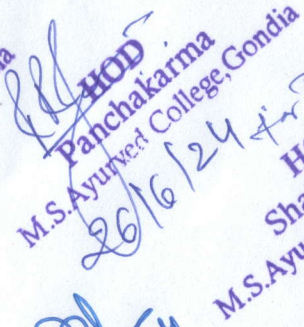 HOD
Panchakarma
M.S.Ayurved College,Gondia
26/6/24
H
Sha
M.S.Ayu